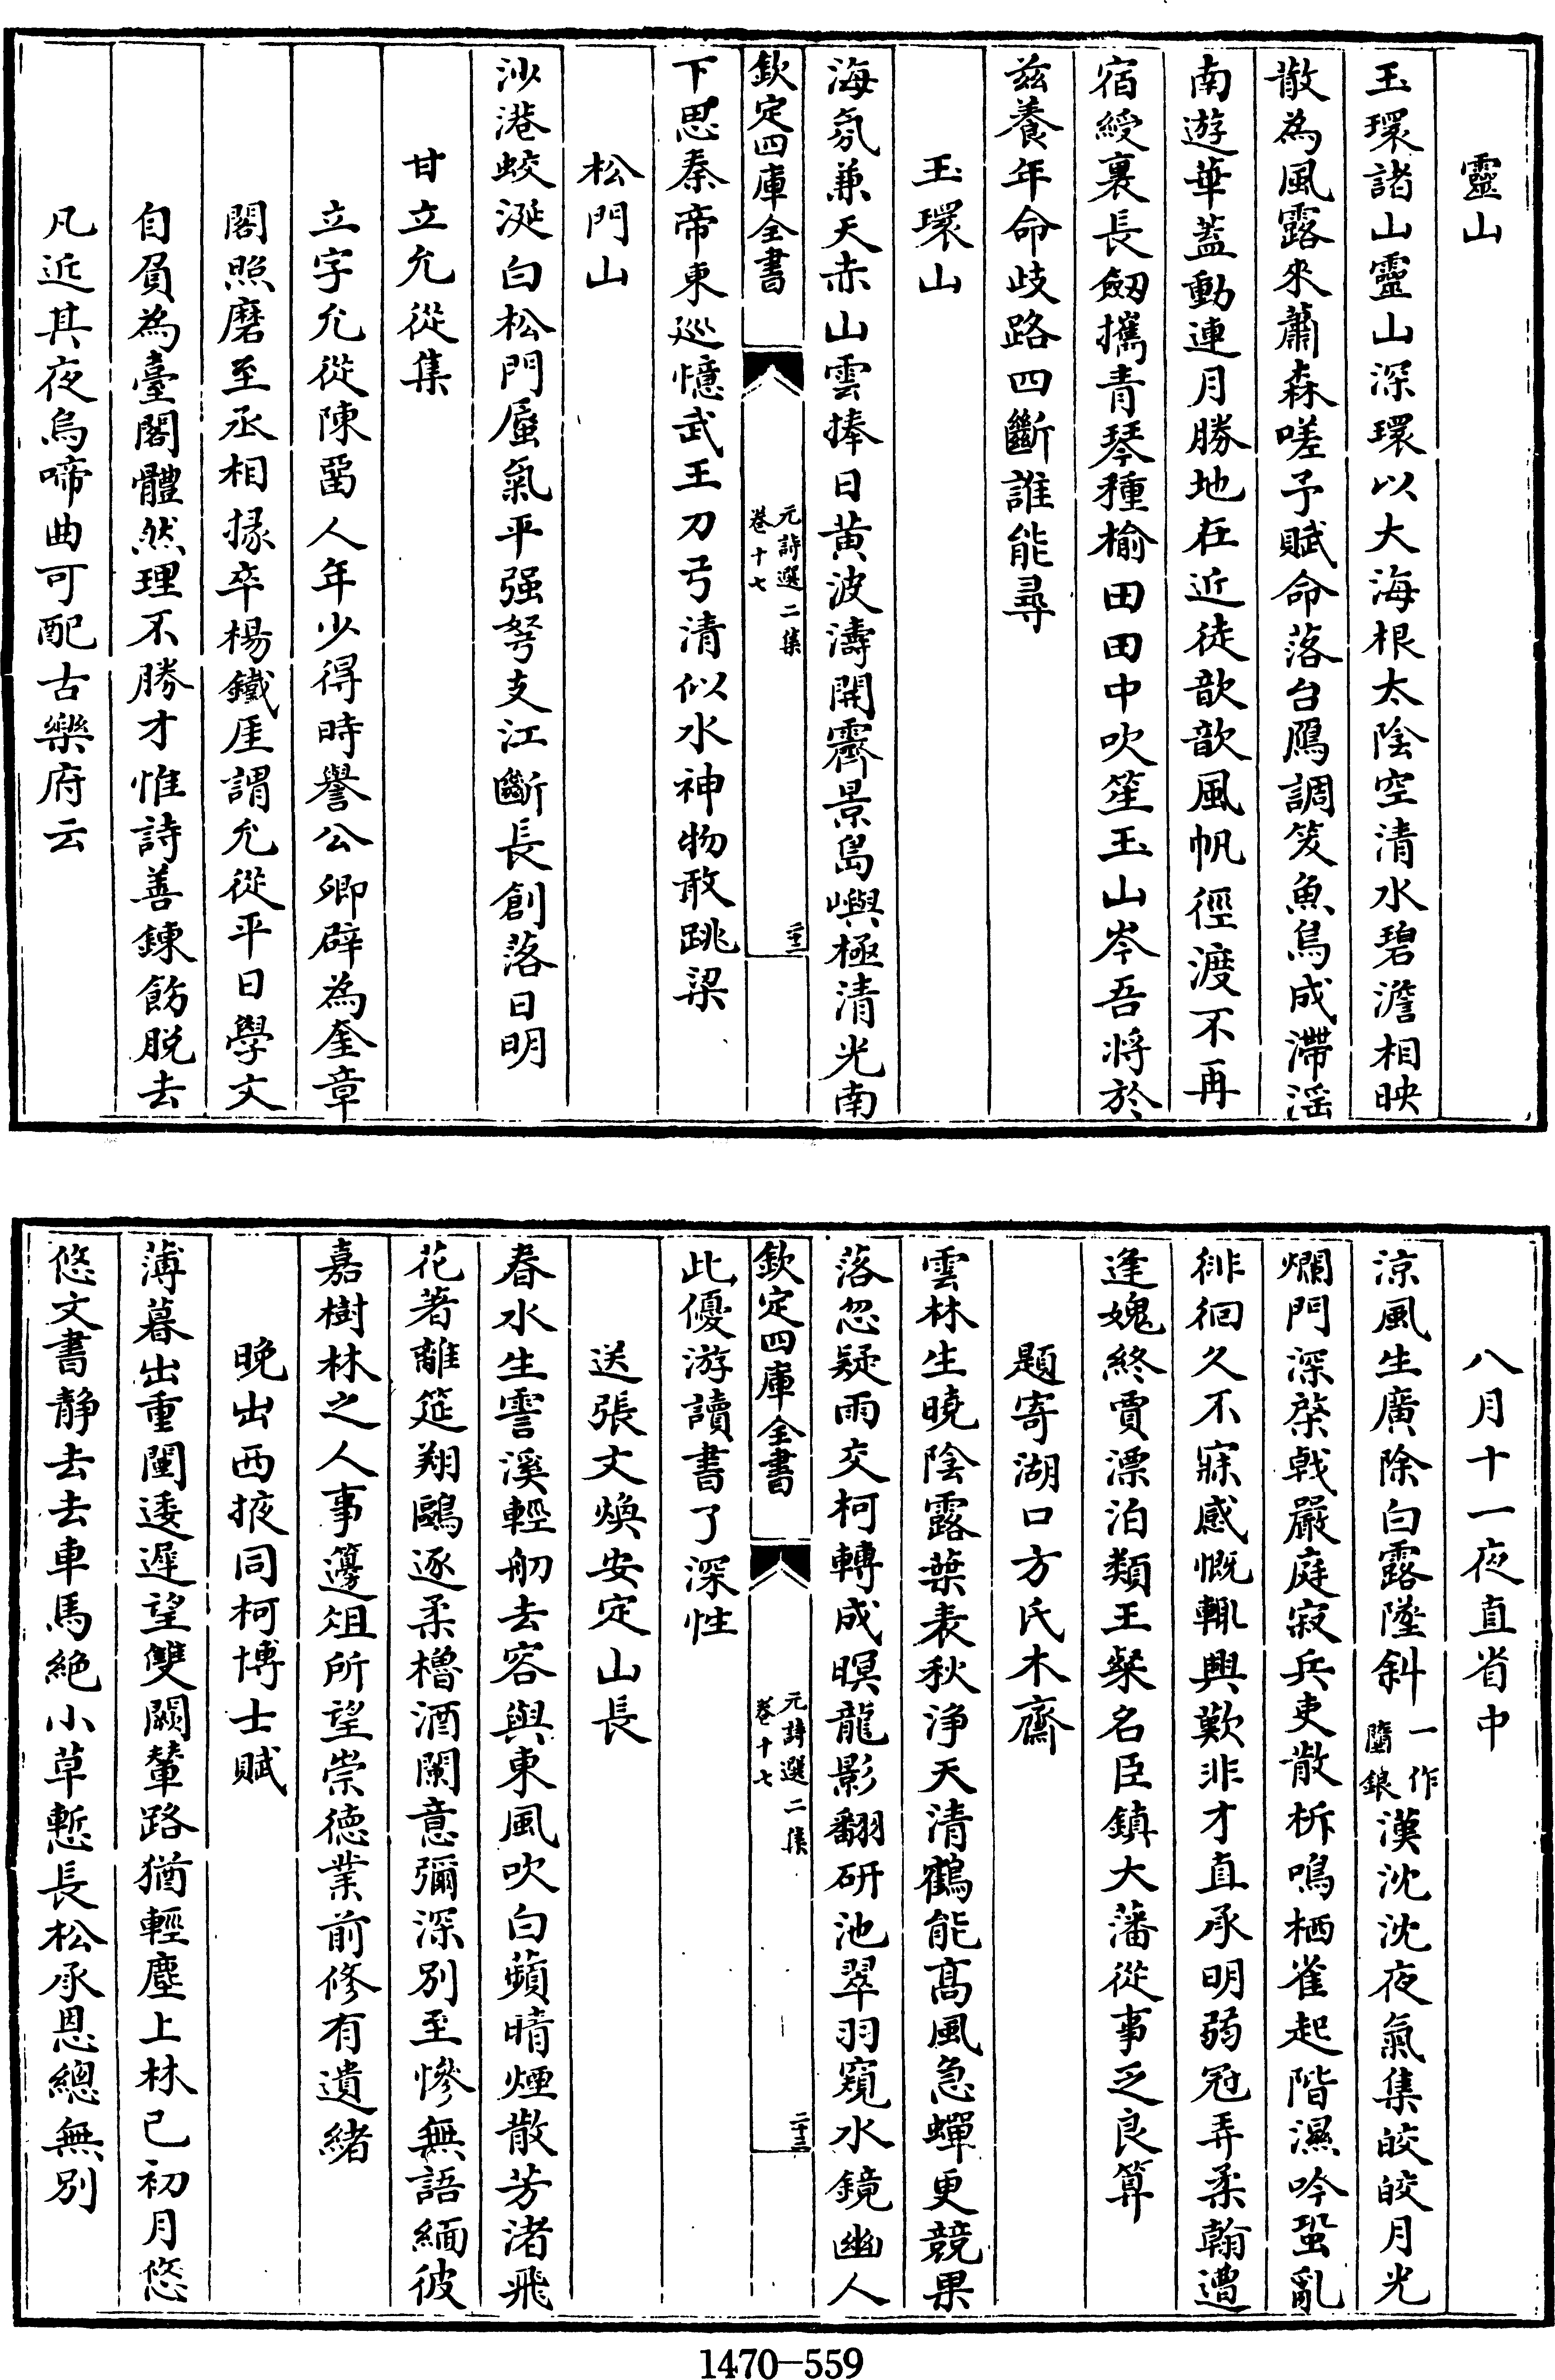 靈山
玉環諸山靈山深環以大海根太陰空清水碧澹相映
散為風露來蕭森嗟予賦命落台鴈調笈魚烏成滯滛
南遊華蓋動連月勝地在近徒歆歆風帆徑渡不再
宿綬裹長劒攜青琴種榆田田中吹笙玉山岑吾將於
兹養年命歧路四斷誰能尋
玉環山
海氛兼天赤山雲捧日黄波濤開霽景島嶼極清光南
欽定四庫全書
元詩選二集
卷十七
二十二
下思秦帝東巡憶武王刀弓清似水神物敢跳梁
松門山
沙港蛟涎白松門蜃氣平强弩支江斷長創落日明
甘立允從集
立字允從陳留人年少得時譽公卿辟為奎章
閣照磨至丞相掾卒楊鐵厓謂允從平日學文
自負為臺閣體然理不勝才惟詩善鍊飭脱去
凡近其夜烏啼曲可配古樂府云
八月十一夜直省中
涼風生廣除白露墜斜一作隨銀漢沈沈夜氣集皎皎月光
爛門深棨戟嚴庭寂兵吏散柝鳴栖雀起階濕吟蛩亂
徘徊久不寐感慨輒興歎非才直承明弱冠弄柔翰遭
逢媿終賈漂泊類王粲名臣鎮大藩從事乏良算
題寄湖口方氏木齋
雲林生曉陰露葉表秋浄天清鶴能髙風急蟬更競果
落忽疑雨交柯轉成暝龍影翻研池翠羽窺水鏡幽人
欽定四庫全書
元詩選二集
卷十七
二十三
此優游讀書了深性
送張文煥安定山長
春水生霅溪輕舠去容與東風吹白蘋晴煙散芳渚飛
花著離筵翔鷗逐柔櫓酒闌意彌深别至慘無語緬彼
嘉樹林之人事籩俎所望崇德業前修有遺緒
晚出西掖同柯博士賦
薄暮出重闉逶遲望雙闕輦路猶輕塵上林已初月悠
悠文書静去去車馬絶小草慙長松承恩總無别
1470—559